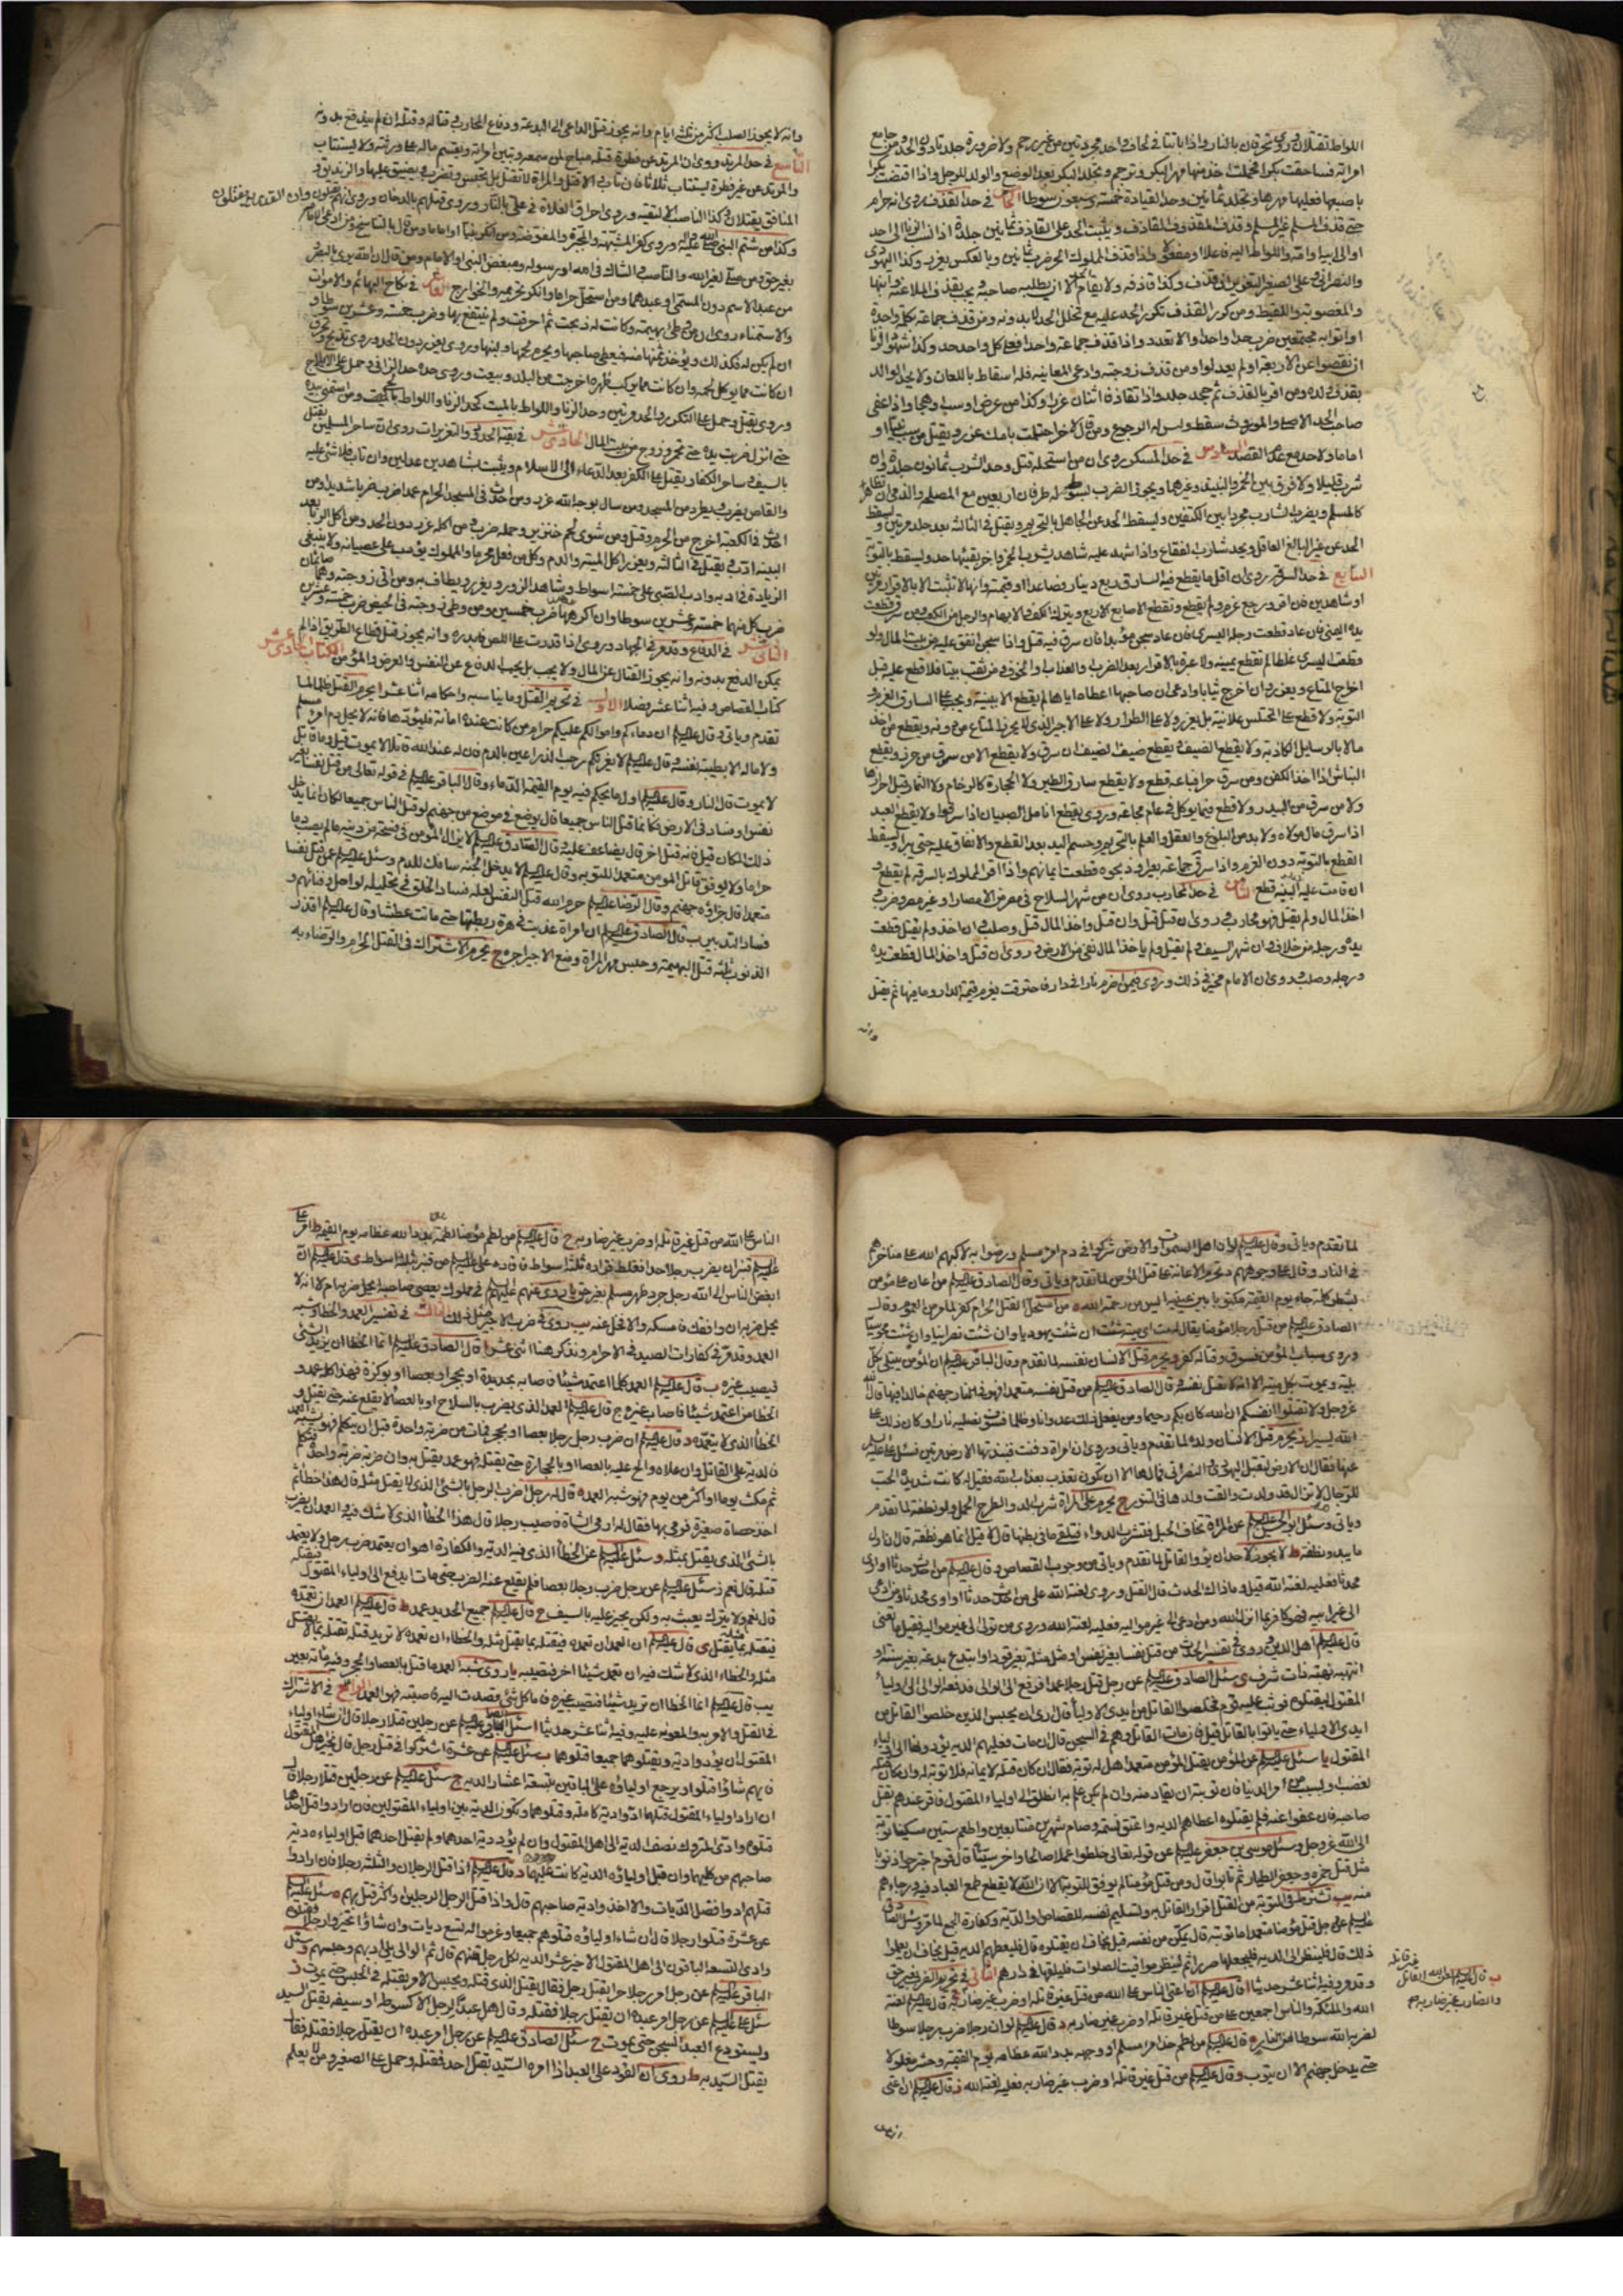 اللواط تقتلان وروي تحرقان بالنار واذا باتتا في لحاف واحد مجردتين من غير رحم ولا ضرورة جلدتا دون الحد ومن جامع
امراته فساحقت بكرا فحملت اخذ منها مهر البكر وترجم وتجلد البكر بعد الوضع والولد للرجل واذا اقتضت بكرا
باصبعها فعليها مهرها وتجلد ثمانين وحد القيادة خمسة وسبعون سوطا الخامس في حد القذف روي انه حرام
حتى قذف المسلم غير المسلم وقذف المقذوف للقاذف ويثبت الحد على القاذف ثمانين جلدة اذا نسب الزنا الى احد
او الى ابيه او امه واللواط اليه فاعلا او مفعولا واذا قذف المملوك الحر ضرب ثمانين وبالعكس يعزر وكذا اليهودي
والنصراني وعلى الصغير التعزير ان قذف وكذا قاذفه ولا يقام الحد الا ان يطلبه صاحبه ويجب بقذف الملاعنة وابنها
والمغصوبة واللقيط ومن كرر القذف تكرر الحد عليه مع تخلل الحد لا بدونه ومن قذف جماعة بكلمة واحدة
او اتوا به مجتمعين ضرب حدا واحدا والا تعدد واذا قذف جماعة واحدا فعلى كل واحد حد وكذا شهود الزنا
ان نقصوا عن الاربعة او لم يعدلوا ومن قذف زوجته وادعى المعاينة فله اسقاطه باللعان ولا يحد الوالد
بقذف ولده ومن اقر بالقذف ثم جحد جلد واذا تقاذف اثنان عزرا وكذا من عرض او سب او هجا واذا عفى
صاحب الحد الاصلي او الموروث سقط وليس له الرجوع ومن قال لآخر احتلمت بامك عزر ويقتل من سب نبيا او
اماما ولا حد مع عدم القصد السادس في حد المسكر روي ان من استحله قتل وحد الشرب ثمانون جلدة وان
شرب قليلا ولا فرق بين الخمر والنبيذ وغيرهما ويجوز الضرب بسوط له طرفان اربعين مع المصلحة والذمي ان تظاهر
كالمسلم ويضرب الشارب مجردا بين الكتفين ويسقط الحد عن الجاهل بالتحريم ويقتل في الثالثة بعد جلد مرتين ويسقط
الحد عن غير البالغ العاقل ويحد شارب الفقاع واذا شهد عليه شاهد بشرب الخمر واخر بقيئها حد ويسقط بالتوبة
السابع في حد السرقة روي ان اقل ما يقطع فيه السارق ربع دينار فصاعدا او قيمته وانها لا تثبت الا بالاقرار مرتين
او شاهدين فان اقر ورجع غرم ولم يقطع وتقطع الاصابع الاربع ويترك الكف والابهام والرجل من الكعب ومن سرق قطعت
يده اليمنى فان عاد قطعت رجله اليسرى فان عاد سجن مؤبدا فان سرق فيه قتل واذا سجن انفق عليه من بيت المال ولو
وقطعت اليسرى غلطا لم تقطع يمينه ولا عبرة بالاقرار بعد الضرب والعذاب والخوف ومن نقب بيتا فلا قطع عليه قبل
اخراج المتاع ويعزر وان اخرج ثيابا وادعى ان صاحبها اعطاه اياها لم يقطع الا ببينة ويجب على السارق الغرم و
التوبة ولا قطع على المختلس علانية بل يعزر ولا على الطرار ولا على الاجير الذي لا يحرز المتاع من دونه ويقطع من اخذ
مالا بالرسائل الكاذبة ولا يقطع الضيف ويقطع ضيف الضيف ان سرق ولا يقطع الا من سرق من حرز ويقطع
النباش اذا اخذ الكفن ومن سرق حرا فباعه قطع ولا يقطع سارق الطير ولا الحجارة كالرخام ولا الثمار قبل احرازها
ولا من سرق من البيدر ولا قطع فيما يؤكل في عام مجاعة وروي يقطع انامل الصبيان اذا سرقوا ولا يقطع العبد
اذا سرق مال مولاه ولا بد من البلوغ والعقل والعلم بالتحريم وحسم اليد بعد القطع والانفاق عليه حتى يبرأ ويسقط
القطع بالتوبة دون الغرم واذا سرق جماعة بعيرا ونحروه قطعت ايمانهم واذا اقر المملوك بالسرقة لم يقطع و
ان قامت عليه البينة قطع الثامن في حد المحارب روي ان من شهر السلاح في مصر من الامصار او غير مصر وضرب و
اخذ المال ولم يقتل فهو محارب وروي ان قتل قتل وان قتل واخذ المال قتل وصلب وان اخذ ولم يقتل قطعت
يده ورجله من خلاف وان شهر السيف ولم يقتل ولم ياخذ المال نفي من الارض وروي ان قتل واخذ المال قطعت يده
ورجله وصلب وروي ان الامام مخير في ذلك وروي فيمن اضرم نارا في دار فاحترقت يغرم قيمة الدار وما فيها ثم يقتل
وانه
وانه لا يجوز الصلب اكثر من ثلثة ايام وانه يجوز قتل الداعي الى البدعة ودفاع المحارب وقتاله وقتله ان لم يندفع بدونه
التاسع في حد المرتد روي ان المرتد عن فطرة قتله مباح لمن سمعه وتبين امراته ويقسم ماله على ورثته ولا يستتاب
والمرتد عن غير فطرة يستتاب ثلاثا فان تاب والا قتل والمراة لا تقتل بل تحبس وتضرب ويضيق عليها والزنديق و
المنافق يقتلان وكذا الناصب الا لتقية وروي احراق الغلاة في علي بالنار وروي قتلهم بالدخان وروي انهم
وكذا من شتم النبي صلى الله عليه وآله وروي كفر المشبهة والمجبرة والمفوضة ومن انكر نبيا او اماما ومن قال بالتناسخ ومن ادعى الامامة
بغير حق ومن صلى لغير الله والناصب والشاك في الله او رسوله ومبغض النبي او الامام ومن قال ان الله يرى بالبصر
من عبد الاسم دون المسمى او عبدهما ومن استحل حراما وانكر تحريمه والخوارج العاشر في نكاح البهائم والاموات
والاستمناء روي ان من وطئ بهيمة وكانت له ذبحت ثم احرقت ولم ينتفع بها وضرب خمسة وعشرين سوطا و
ان لم يكن له فكذلك ويؤخذ ثمنها منه فيعطى صاحبها ويحرم لحمها ولبنها وروي يعزر دون الحد وروي
ان كانت مما يؤكل لحمه وان كانت مما يركب ظهره اخرجت من البلد وبيعت وروي حده حد الزاني وحمل على الايلاج
وروي يقتل وحمل على التكرر والحد مرتين وحد الزنا واللواط بالميت كحد الزنا واللواط بالحي ومن استمنى بيده
حتى انزل ضربت يده حتى تحمر وزوج من بيت المال الحادي عشر في بقية الحدود والتعزيرات روي ان ساحر المسلمين يقتل
بالسيف وساحر الكفار يقتل على الكفر بعد الدعاء الى الاسلام ويثبت بشاهدين عدلين وان تاب فلا شئ عليه
والقاص يضرب ويطرد من المسجد ومن سال بوجه الله عزر ومن احدث في المسجد الحرام عمدا ضرب ضربا شديدا ومن
احدث في الكعبة اخرج من الحرم وقتل ومن شوى لحم خنزير وحمله ضرب ومن اكله عزر دون الحد ومن اكل الربا بعد
البينة ادب ويقتل في الثالثة ويعزر اكل الميتة والدم وكل من فعل محرما والمملوك يؤدب على عصيانه ولا ينبغي
الزيادة في ادبه وادب الصبي على خمسة اسواط وشاهد الزور يعزر ويطاف به ومن اتى زوجته وهما صائمان
ضرب كل منهما خمسة وعشرين سوطا وان اكرهها ضرب خمسين ومن وطئ زوجته في الحيض ضرب خمسة وعشرين
الثاني عشر في الدفاع وقد مر في الجهاد وروي اذا قدرت على اللص فابدره وانه يجوز قتل قطاع الطريق اذا لم
يمكن الدفع بدونه وانه يجوز القتال عن المال ولا يجب بل يجب الدفاع عن النفس والعرض والمؤمن الكتاب الحادي عشر
كتاب القصاص وفيه اثنا عشر فصلا الاول في تحريم القتل وما يناسبه واحكامه اثنا عشر ا يحرم القتل ظلما لما
تقدم وياتي وقال عليه السلم ان دماءكم واموالكم عليكم حرام من كانت عنده امانة فليؤدها فانه لا يحل دم امرئ مسلم
ولا ماله الا بطيبة نفسه وقال عليه السلم لا يغرنكم رحب الذراعين بالدم فان له عند الله قاتلا لا يموت قيل وما قاتل
لا يموت قال النار وقال عليه السلم اول ما يحكم فيه يوم القيمة الدماء وقال الباقر عليه السلم في قوله تعالى من قتل نفسا بغير
نفس او فساد في الارض فكانما قتل الناس جميعا قال يوضع في موضع من جهنم لو قتل الناس جميعا لكان انما يدخل
ذلك المكان قيل فانه قتل اخر قال يضاعف عليه وقال الصادق عليه السلم لا يزال المؤمن في فسحة من دينه ما لم يصب دما
حراما ولا يوفق قاتل المومن متعمدا للتوبة وقال عليه السلم لا يدخل الجنة سافك للدم وسئل عليه السلم عمن قتل نفسا
متعمدا قال جزاؤه جهنم وقال الرضا عليه السلم حرم الله قتل النفس لعلة فساد الخلق في تحليله لو احل وفنائهم و
فساد التدبير ب قال الصادق عليه السلم ان امراة عذبت في هرة ربطتها حتى ماتت عطشا وقال عليه السلم اقذر
الذنوب ثلثة قتل البهيمة وحبس مهر المراة ومنع الاجير اجره ج يحرم الاشتراك في القتل الحرام والرضاء به
لما تقدم وياتي وقال عليه السلم لو ان اهل السموات والارض شركوا في دم امرئ مسلم ورضوا به لاكبهم الله على مناخرهم
في النار وقال على وجوههم د تحرم الاعانة على قتل المؤمن لما تقدم وياتي وقال الصادق عليه السلم من اعان على مؤمن
بشطر كلمة جاء يوم القيمة مكتوب بين عينيه ايس من رحمة الله ه من استحل القتل الحرام كفر لما مر من العموم وقال
الصادق عليه السلم من قتل رجلا مؤمنا يقال له مت اي ميتة شئت ان شئت يهوديا وان شئت نصرانيا وان شئت مجوسيا
وروي سباب المؤمن فسوق وقتاله كفر و يحرم قتل الانسان نفسه لما تقدم وقال الباقر عليه السلم ان المؤمن يبتلى بكل
بلية ويموت بكل ميتة الا انه لا يقتل نفسه وقال الصادق عليه السلم من قتل نفسه متعمدا فهو في نار جهنم خالدا فيها قال الله
عز وجل ولا تقتلوا انفسكم ان الله كان بكم رحيما ومن يفعل ذلك عدوانا وظلما فسوف نصليه نارا وكان ذلك على
الله يسيرا ز يحرم قتل الانسان ولده لما تقدم وياتي وروي ان امراة دفنت فنبذتها الارض مرتين فسئل
عنها فقال ان الارض لتقبل اليهودي والنصراني فما لها الا ان تكون تعذب بعذاب الله فقيل له كانت شديدة الحب
للرجال لا تزال قد ولدت والقت ولدها في التنور ح يحرم على المراة شرب الدواء لطرح الحمل ولو نطفة لما تقدم
وياتي وسئل ابو الحسن عليه السلم عن المراة تخاف الحبل فتشرب الدواء فتلقي ما في بطنها قال لا قيل انما هو نطفة قال ان اول
ما يبدو نطفة ط لا يجوز لاحد ان يؤوي القاتل لما تقدم وياتي من وجوب القصاص وقال عليه السلم من احدث حدثا او اوى
محدثا فعليه لعنة الله قيل وما ذاك الحدث قال القتل وروي لعنة الله على من احدث حدثا او اوى محدثا ومن ادعى
الى غير ابيه فهو كافر بما انزل الله ومن ادعى الى غير مواليه فعليه لعنة الله وروي من تولى الى غير مواليه فقيل ما يعني
قال عليه السلم اهل الدين وروي في تفسير الحدث من قتل نفسا بغير نفس او مثل مثلة بغير قود او ابتدع بدعة بغير سنة او
انتهب نهبة ذات شرف ي سئل الصادق عليه السلم عن رجل قتل رجلا عمدا فرفع الى الوالي فدفعه الوالي الى اولياء
المقتول ليقتلوه فوثب عليه قوم فخلصوا القاتل من ايدي الاولياء قال ارى ان يحبس الذين خلصوا القاتل من
ايدي الاولياء حتى ياتوا بالقاتل قيل فان مات القاتل وهم في السجن قال ان مات فعليهم الدية يؤدونها الى اولياء
المقتول يا سئل عليه السلم عن المؤمن يقتل المؤمن متعمدا هل له توبة فقال ان كان قتله لايمانه فلا توبة له وان كان قتله
لغضب او لسبب من امر الدنيا فان توبته ان يقاد منه وان لم يكن علم به انطلق الى اولياء المقتول فاقر عندهم بقتل
صاحبهم فان عفوا عنه فلم يقتلوه اعطاهم الدية واعتق نسمة وصام شهرين متتابعين واطعم ستين مسكينا توبة
الى الله عز وجل وسئل موسى بن جعفر عليه السلم عن قوله تعالى خلطوا عملا صالحا واخر سيئا قال قوم اجترحوا ذنوبا
مثل قتل حمزة وجعفر الطيار ثم تابوا قال ومن قتل مؤمنا لم يوفق للتوبة الا ان الله لا يقطع طمع العباد فيه ورجاءهم
منه يب تشترط في التوبة من القتل اقرار القاتل به وتسليم نفسه للقصاص او الدية وكفارة الجمع لما مر وسئل الصادق
عليه السلم عن رجل قتل مؤمنا متعمدا ما توبته قال يمكن من نفسه قيل يخاف ان يقتلوه قال فليعطهم الدية قيل يخاف ان يعلموا
ذلك قال فلينظر الى الدية فليجعلها صررا ثم لينظر مواقيت الصلوات فليلقها في دارهم الثاني في تحريم الضرب بغير حق
وقد مر وفيه اثنا عشر حديثا ا قال عليه السلم ان اعتى الناس على الله من قتل غير قاتله او ضرب غير ضاربه ج قال عليه السلم لعنة
الله والملئكة والناس اجمعين على من قتل غير قاتله او ضرب غير ضاربه د قال عليه السلم لو ان رجلا ضرب رجلا سوطا
لضربه الله سوطا من النار ه قال عليه السلم من لطم خد امرئ مسلم او وجهه بدد الله عظامه يوم القيمة وحشر مغلولا
حتى يدخل جهنم الا ان يتوب و قال عليه السلم من قتل غير قاتله او ضرب غير ضاربه فعليه لعنة الله ز قال عليه السلم ان اعتى
ب قال عليه السلم لعن الله القاتل غير قاتله
والضارب غير ضاربه
الناس على الله من قتل غير قاتله او ضرب غير ضاربه ح قال عليه السلم من لطم مؤمنا لطمة بدد الله عظامه يوم القيمة ط امر علي
عليه السلم قنبرا ان يضرب رجلا حدا فغلط فزاده ثلثة اسواط فاقاده علي عليه السلم من قنبر ثلثة اسواط ي قال عليه السلم ان
ابغض الناس الى الله رجل جرد ظهر مسلم بغير حق يا روي عنهم عليهم السلم في مملوك يعصي صاحبه ايحل ضربه ام لا انه لا
يحل ضربه ان وافقك فامسكه والا فخل عنه يب روي في ضرب الاجير مثل ذلك الثالث في تفسير العمد والخطا وشبه
العمد وقد مر في كفارات الصيد في الاحرام ونذكر هنا اثنى عشر ا قال الصادق عليه السلم انما الخطا ان يريد الشئ
فيصيب غيره ب قال عليه السلم العمد كلما اعتمد شيئا فاصابه بحديدة او بحجر او بعصا او بوكزة فهذا كله عمد و
الخطا من اعتمد شيئا فاصاب غيره ج قال عليه السلم العمد الذي يضرب بالسلاح او بالعصا لا يقلع عنه حتى يقتل و
الخطا الذي لا يتعمده د قال عليه السلم ان ضرب رجل رجلا بعصا او بحجر فمات من ضربة واحدة قبل ان يتكلم فهو شبه العمد
فالدية على القاتل وان علاه والح عليه بالعصا او بالحجارة حتى يقتله فهو عمد يقتل به وان ضربه ضربة واحدة فتكلم
ثم مكث يوما او اكثر من يوم فهو شبه العمد ه قال له رجل اضرب الرجل بالشئ الذي لا يقتل مثله قال هذا خطا ثم
اخذ حصاة صغيرة فرمى بها فقال له ارمي الشاة فاصيب رجلا قال هذا الخطا الذي لا شك فيه والعمد ان يضرب
بالشئ الذي يقتل بمثله و سئل عليه السلم عن الخطأ الذي فيه الدية والكفارة اهو ان يعتمد ضرب رجل ولا يعتمد
قتله قال نعم ز سئل عليه السلم عن رجل ضرب رجلا بعصا فلم يقلع عنه الضرب حتى مات ايدفع الى اولياء المقتول فيقتله
قال نعم ولا يترك يعبث به ولكن يجيز عليه بالسيف ح قال عليه السلم جميع الحديد عمد ط قال عليه السلم العمد ان تعمده
فيقتله بما يقتل مثله ي قال عليه السلم ان العمد ان تعمده فيقتله بما يقتل مثله والخطاء ان تعمده لا تريد قتله تقتله بما لا يقتل
مثله والخطاء الذي لا شك فيه ان تعمد شيئا اخر فتصيبه يا روي شبه العمد ما قتل بالعصا والحجر وفيه مائة بعير
يب قال عليه السلم انما الخطا ان تريد شيئا فتصيب غيره فاما كل شئ قصدت اليه فاصبته فهو العمد الرابع في الاشتراك
في القتل والامر به والمعونة عليه وفيه اثنا عشر حديثا ا سئل الصادق عليه السلم عن رجلين قتلا رجلا قال ان شاء اولياء
المقتول ان يؤدوا دية ويقتلوهما جميعا قتلوهما ب سئل عليه السلم عن عشرة اشتركوا في قتل رجل قال يخير اهل المقتول
فايهم شاؤا قتلوا ويرجع اولياؤه على الباقين بتسعة اعشار الدية ج سئل عليه السلم عن رجلين قتلا رجلا قال
ان اراد اولياء المقتول قتلهما ادوا دية كاملة وقتلوهما وتكون الدية بين اولياء المقتولين فان ارادوا قتل احدهما
قتلوه وادى المتروك نصف الدية الى اهل المقتول وان لم يؤد دية احدهما ولم يقتل احدهما قبل اولياءه دية
صاحبهم من كليهما وان قبل اولياؤه الدية كانت عليهما د قال عليه السلم اذا قتل الرجلان والثلثة رجلا فان ارادوا
قتلهم ادوا فضل الديات والا اخذوا دية صاحبهم قال واذا قتل الرجل الرجلين او اكثر قتل بهم ه سئل عليه السلم
عن عشرة قتلوا رجلا قال ان شاء اولياؤه قتلوهم جميعا وغرموا تسع ديات وان شاؤا تخيروا رجلا فقتلوه
وادى التسعة الباقون الى اهل المقتول الاخير عشر الدية لكل رجل منهم قال ثم الوالي يلي ادبهم وحبسهم و سئل
الباقر عليه السلم عن رجل امر رجلا حرا بقتل رجل فقال يقتل الذي قتله ويحبس الامر بقتله في الحبس حتى يموت ز
سئل علي عليه السلم عن رجل امر عبده ان يقتل رجلا فقتله وقال هل عبد الرجل الا كسوطه او سيفه يقتل السيد
ويستودع العبد السجن حتى يموت ح سئل الصادق عليه السلم عن رجل امر عبده ان يقتل رجلا فقتله فقال
يقتل السيد به ط روي ان القود على العبد اذا امره السيد بقتل احد فقتله وحمل على الصغير ومن لا يعلم